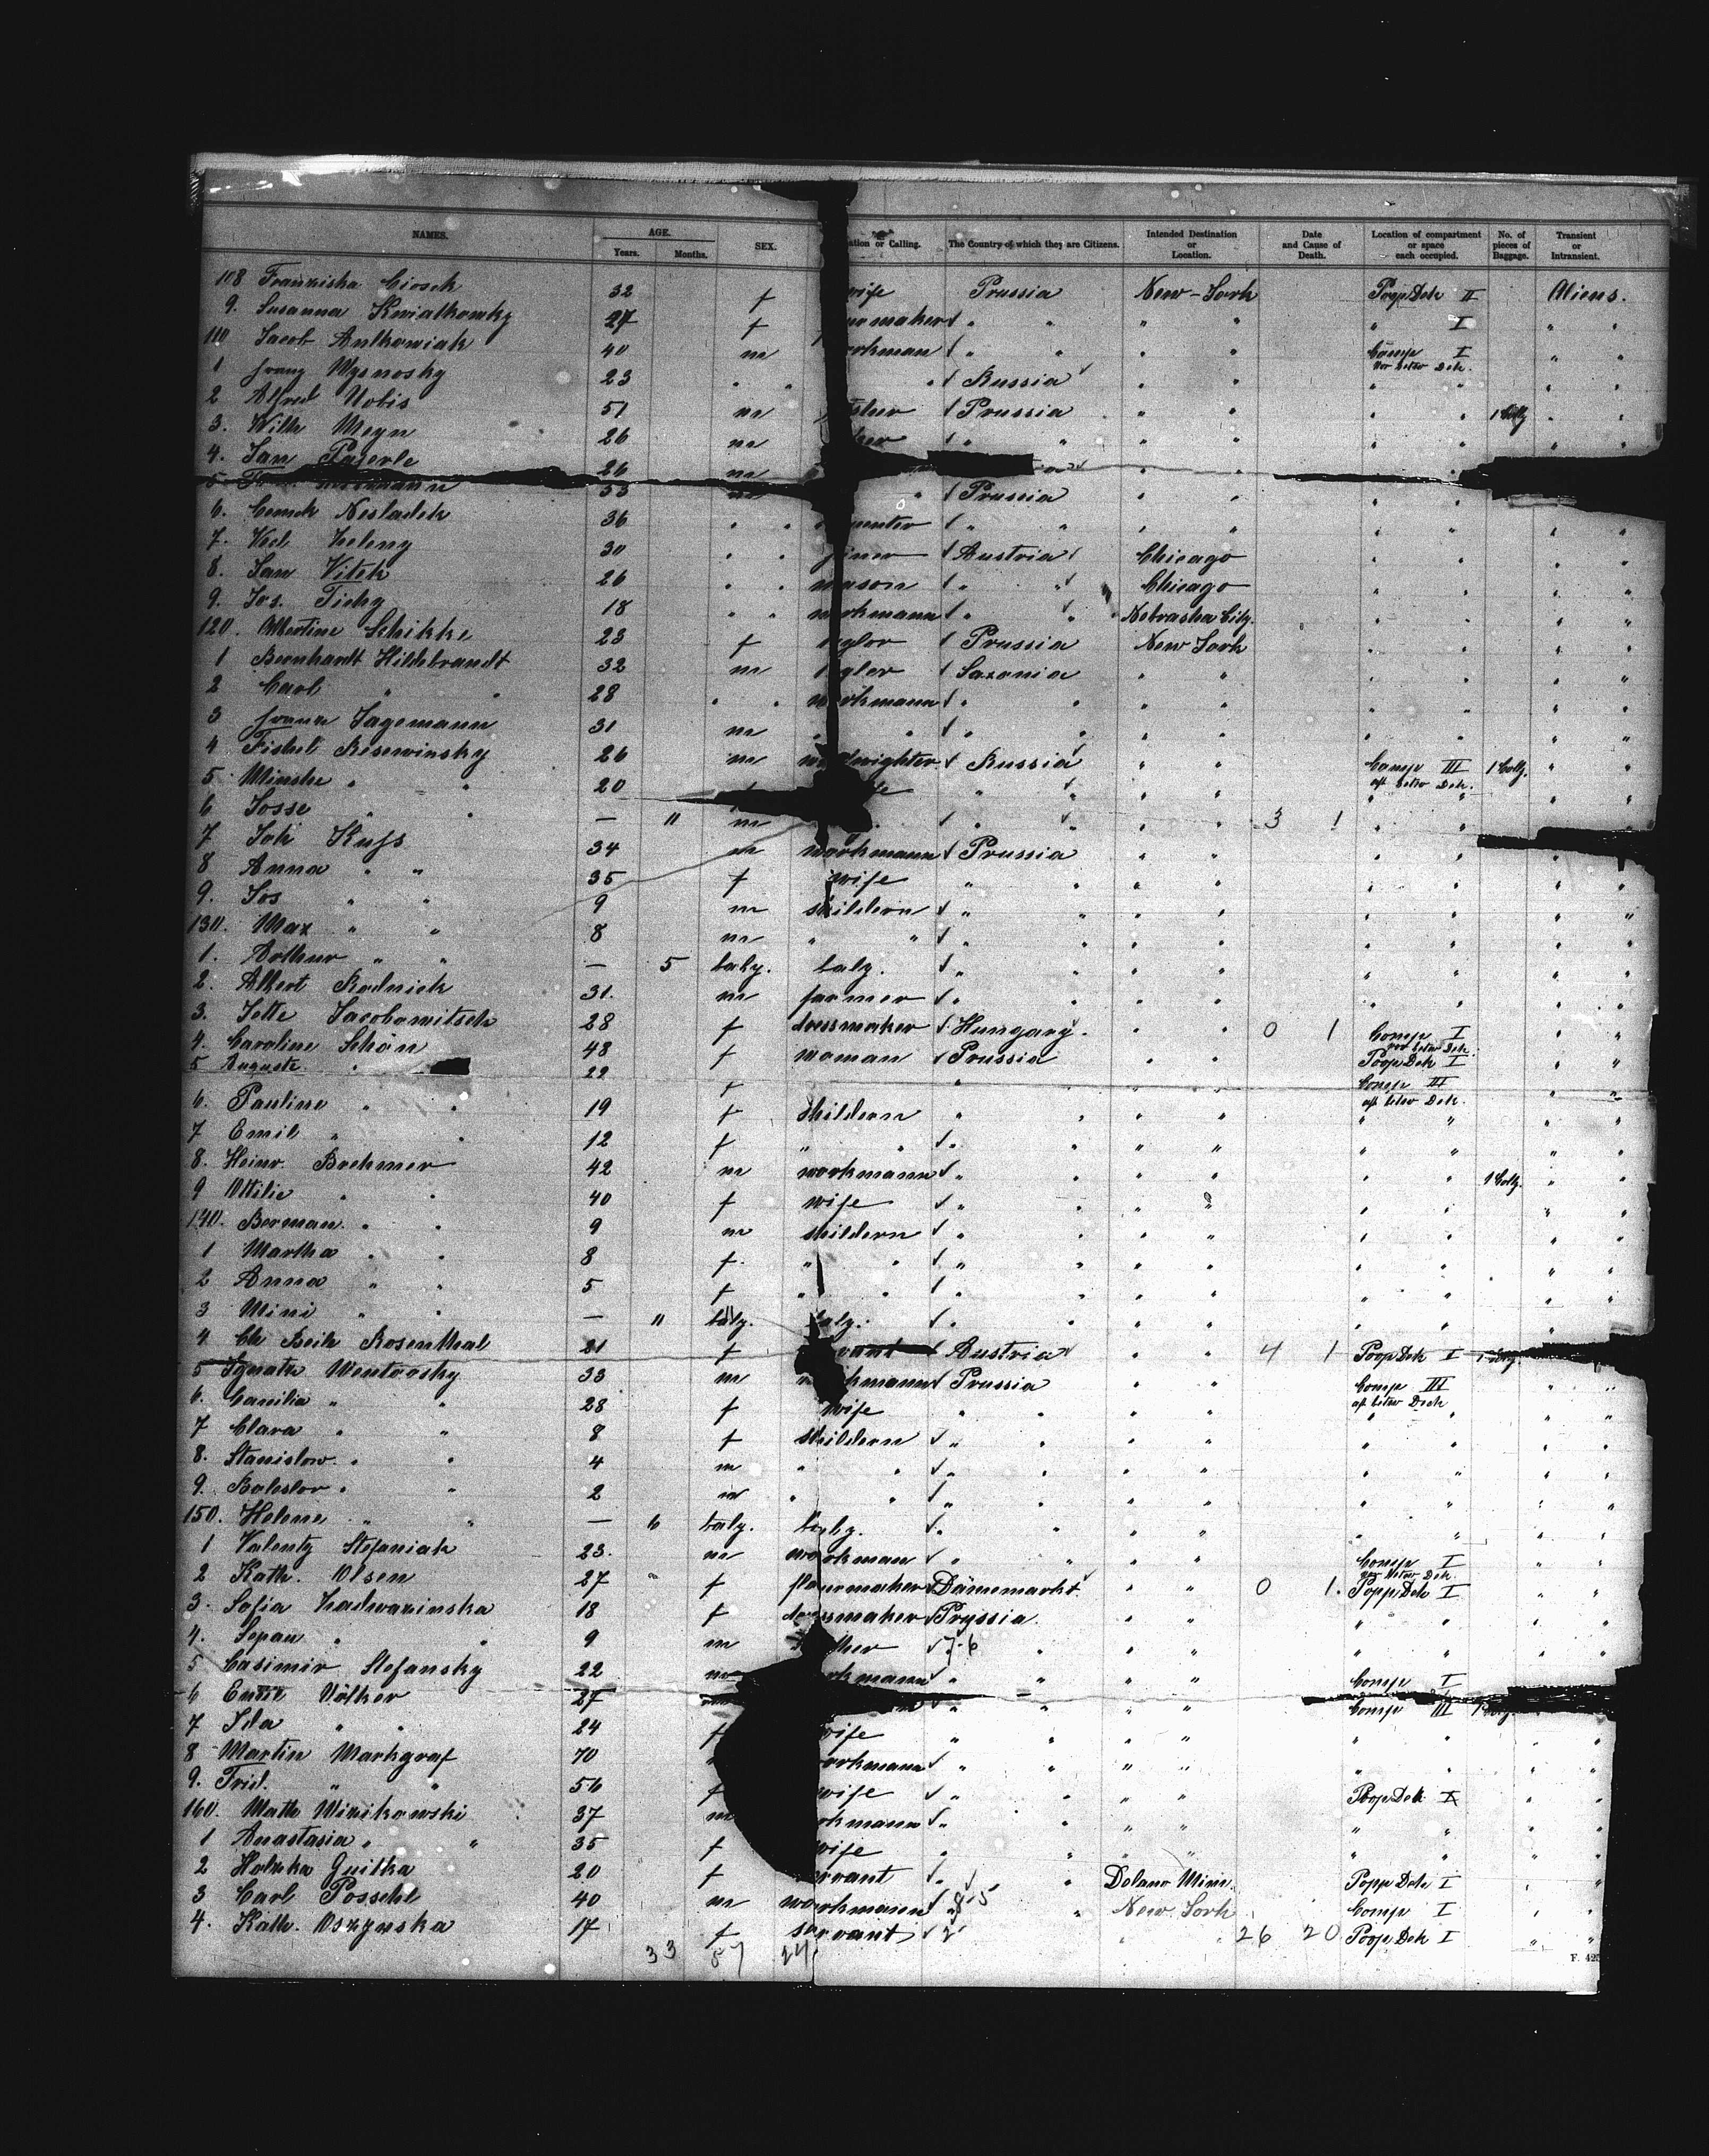 NAMES. AGE. Years. Months. SEX. ation or Calling. The Country of which they are Citizens. Intended Destination or Location. Date and Cause of Death. Location of compartment or space each occupied. No. of pieces of Baggage. Transient or Intransient.
108 Franziska Ciosek 32 f wife Prussia New-York Poop Dek II Aliens.
9. Susanna Kwiatkowsky 27 f maker " " " " " I " "
110 Jacob Antkowiak 40 m workman " " " " Comp I vor betw Dek. " "
1 Franz Wysnosky 23 " " " Russia " " " " " "
2 Alfred Nobis 51 m Prussia " " " " 1 Colly " "
3. Wilh Meyn 26 m " " " " " " " "
4. Jan Pajerle 26 m " "
5. 53 " Prussia " " " "
6. Nesladek 36 " " " " " " " " " "
7. Zeleny 30 " " joiner Austria Chicago " " " "
8. Jan Vitek 26 " " mason " " Chicago " " " "
9. Jos. Tichy 18 " " workmann " " Nebraska City. " " " "
120. Schikke 23 f Prussia New York " " " "
1 Bernhardt Hildebrandt 32 m Saxonia " " " " " "
2 Carl " " 28 " " workmann " " " " " " " "
3 Jagemann 31 m " " " " " " " " " "
4 Fishel Risewinsky 26 m Russia " " Comp III aft betw Dek. 1 Colly. " "
5 Minske " " 20 f wife " " " " " " " "
6 Josse " " — 11 m " " " " 3 1 " " " "
7 Joh Kuss 34 m workmann Prussia " " " " " "
8 Anna " " 35 f wife " " " " " " " "
9. Jos " " 9 m childern " " " " " " " "
130. Max " " 8 m " " " " " " " " " "
1. Arthur " " — 5 baby. baby. " " " " " " " "
2. Albert Radnick 31. m farmer " " " " " " " "
3. Jette Jacobowitsch 28 f dressmaker Hungary " " 0 1 Comp I vor betw Dek. " "
4. Caroline Schön 48 f woman Prussia " " Poop Dek I " "
5 Auguste " 22 f " " " " Comp III aft betw Dek. " "
6. Pauline " " 19 f childern " " " " " " " "
7 Emil " " 12 f " " " " " " " " " "
8. Heinr. Boehmer 42 m workmann " " " " " " 1 Colly. " "
9 Ottilie " " 40 f wife " " " " " " " "
140. Herman " " 9 m childern " " " " " " " "
1 Martha " " 8 f. " " " " " " " " " "
2 Anna " " 5 f " " " " " " " " " "
3 Mini " " — 11 baby. baby. " " " " " " " "
4 Rosenthal 21 f servant Austria " " 4 1 Poop Dek I 1 Colly.
5 Ignatz Wentorsky 33 m workmann Prussia " " Comp III aft betw Deck " "
6. Camilia " " 28 f wife " " " " " " " "
7 Clara " " 8 f childern " " " " " " " "
8. Stanislow " " 4 m " " " " " " " " " "
9. Boleslov " " 2 m " " " " " " " " " "
150. Helene " " — 6 baby. baby. " " " " " " " "
1 Valenty Stefaniak 23. m workman " " " " Comp I vor betw Dek. " "
2 Kath. Olsen 27 f maker Dänemarkt " " 0 1. Popp Dek I " "
3. Sofia Zadwazinska 18 f dressmaker Pryssia. " " " " " "
4. Sepan " " 9 m 7-6 " " " " " " "
5 Casimir Stefansky 22 m workmann " " " " Comp I
6 Völker 27 " " " " Comp III
7 Ida " " 24 f wife " " " " " " " "
8 Martin Markgraf 70 workmann " " " " " " " "
9. Frid. " " 56 f wife " " " " Poop Dek I " "
160. Math Wizikowski 37 m workmann " " " " " " " "
1 Anastasia " " 35 f wife " " " " " " " "
2 Guitka 20 f servant " " Delano Minn. Popp Dek I " "
3 Carl Posseht 40 m workmann 8-5 " New York Comp I " "
4. Kath. Oszynska 17 f servant 2 " " 26 20 Poop Dek I " "
33 57 24
F. 425